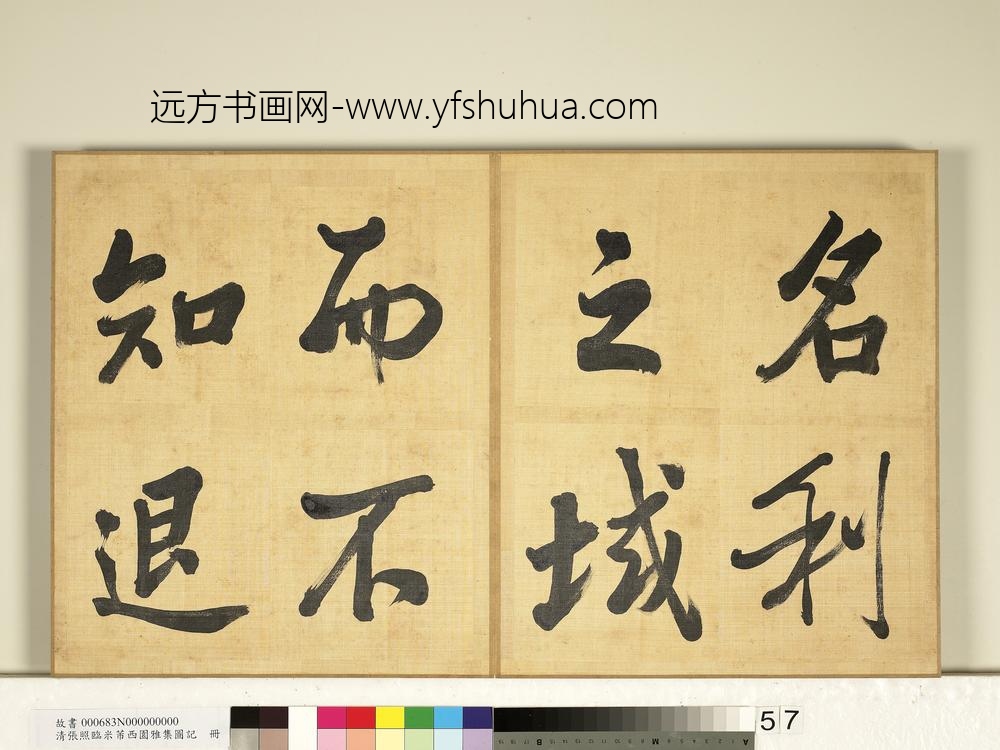 远方书画网-www.yfshuhua.com
名利
之域
而不
知退
故書 000683N000000000
清張照臨米芾西園雅集圖記 冊
57